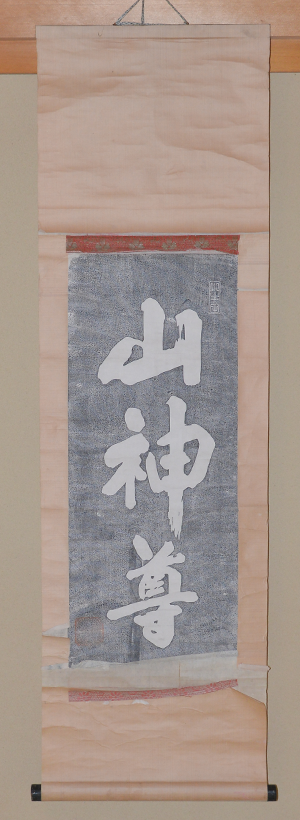 山神尊